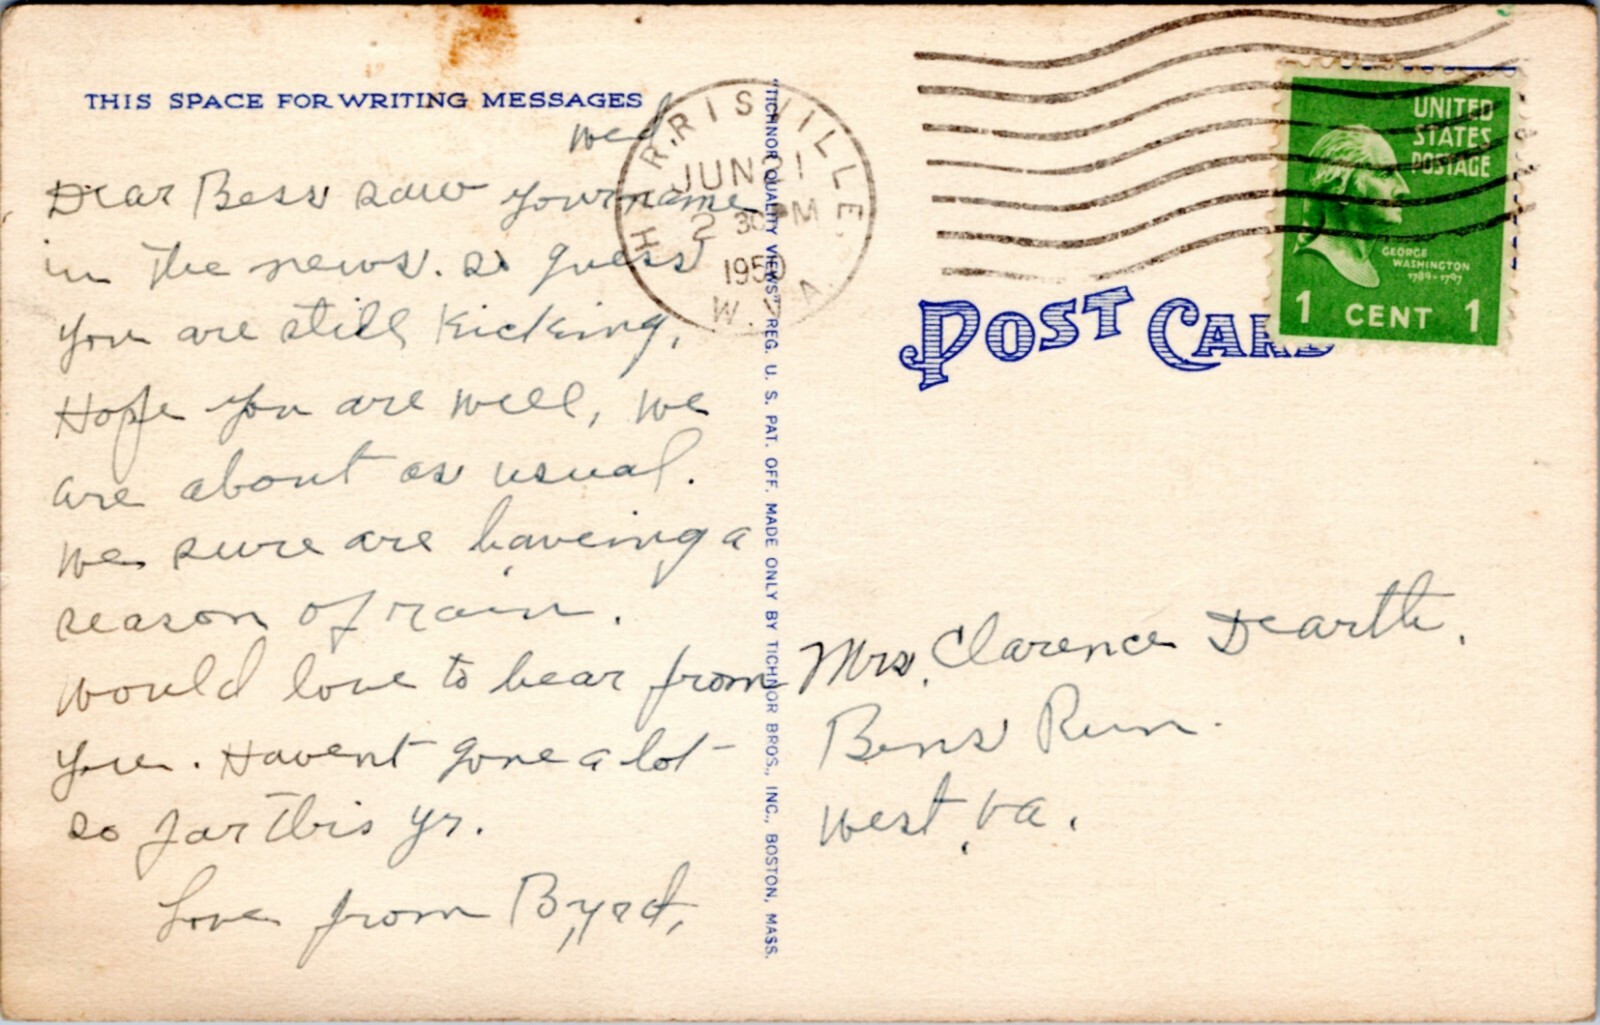 THIS SPACE FOR WRITING MESSAGES
Wed
Dear Bess saw your name
in the news. so guess
you are still kicking,
Hope you are well, we
are about as usual.
We sure are haveing a
season of rain.
would love to hear from
you. Havent gone a lot
so far this yr.
Love from Byrd,
HARRISVILLE,
JUN 21
2 30 PM
1950
W. VA.
"TICHNOR QUALITY VIEWS" REG. U. S. PAT. OFF. MADE ONLY BY TICHNOR BROS., INC., BOSTON, MASS.
UNITED
STATES
POSTAGE
GEORGE
WASHINGTON
1789-1797
1 CENT 1
POST CARD
Mrs. Clarence Dearth.
Bens Run.
West, Va.